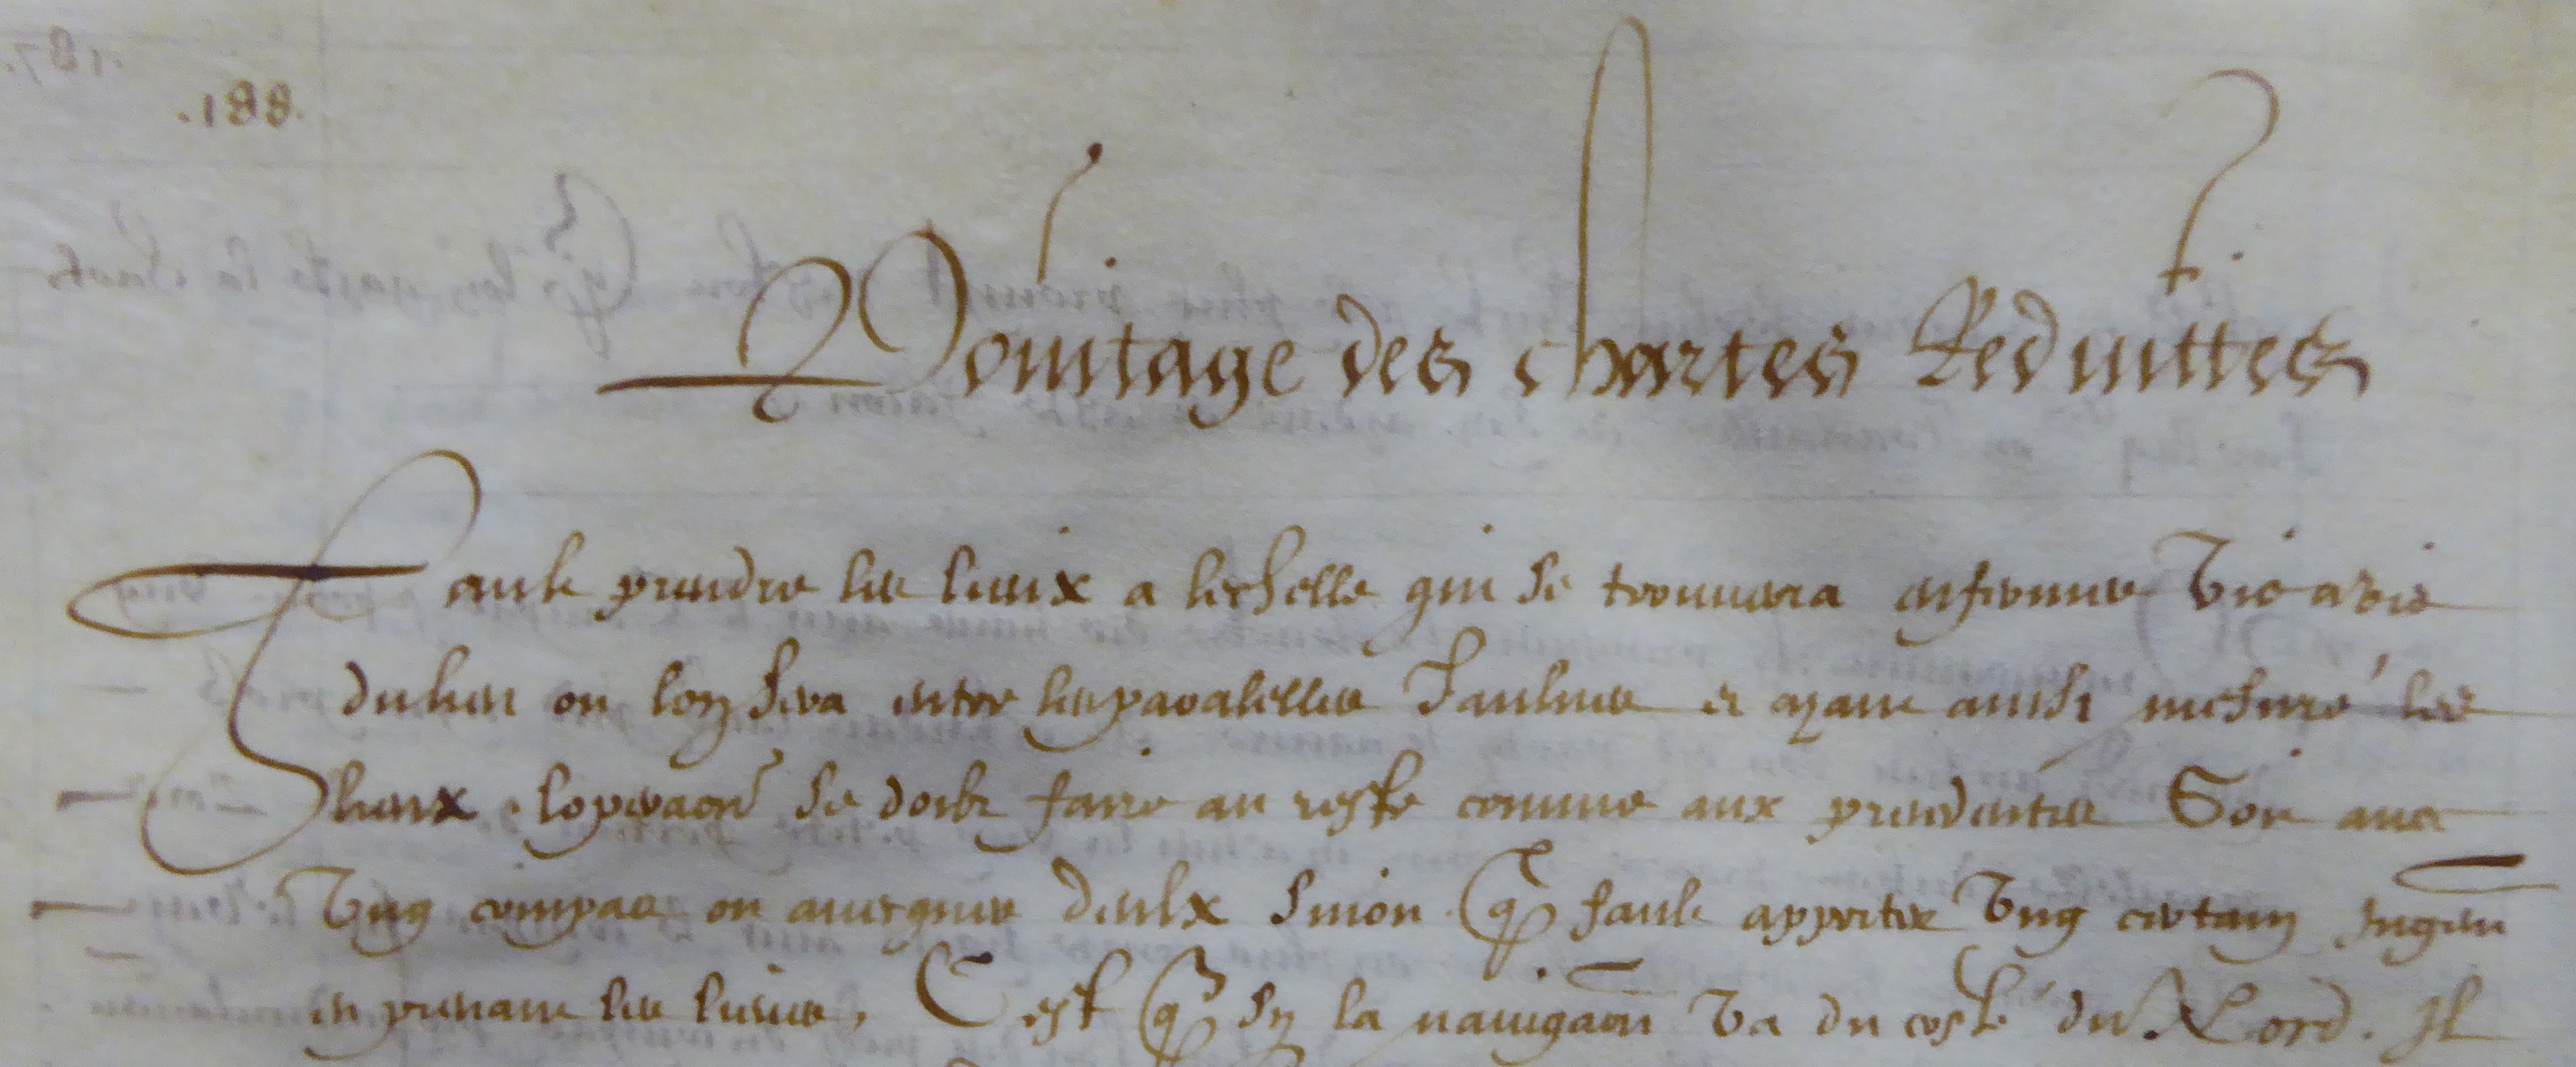 .188.
Pointage des chartes Reduittes
Fault prendre les lieux a leschelle qui se trouuera enfermee vis a vis
du lieu ou lon sera entre les paralelles et ayant ainsi mesuré les
lieux loperaon se doibt faire au reste comme aux precedentes Soit auec
Vng compas ou auecques deulx sinon q fault apporter Vng certain Ingen
en prenant les lieues, Cest q sy la nauigaon Va du costé du Nord. Il